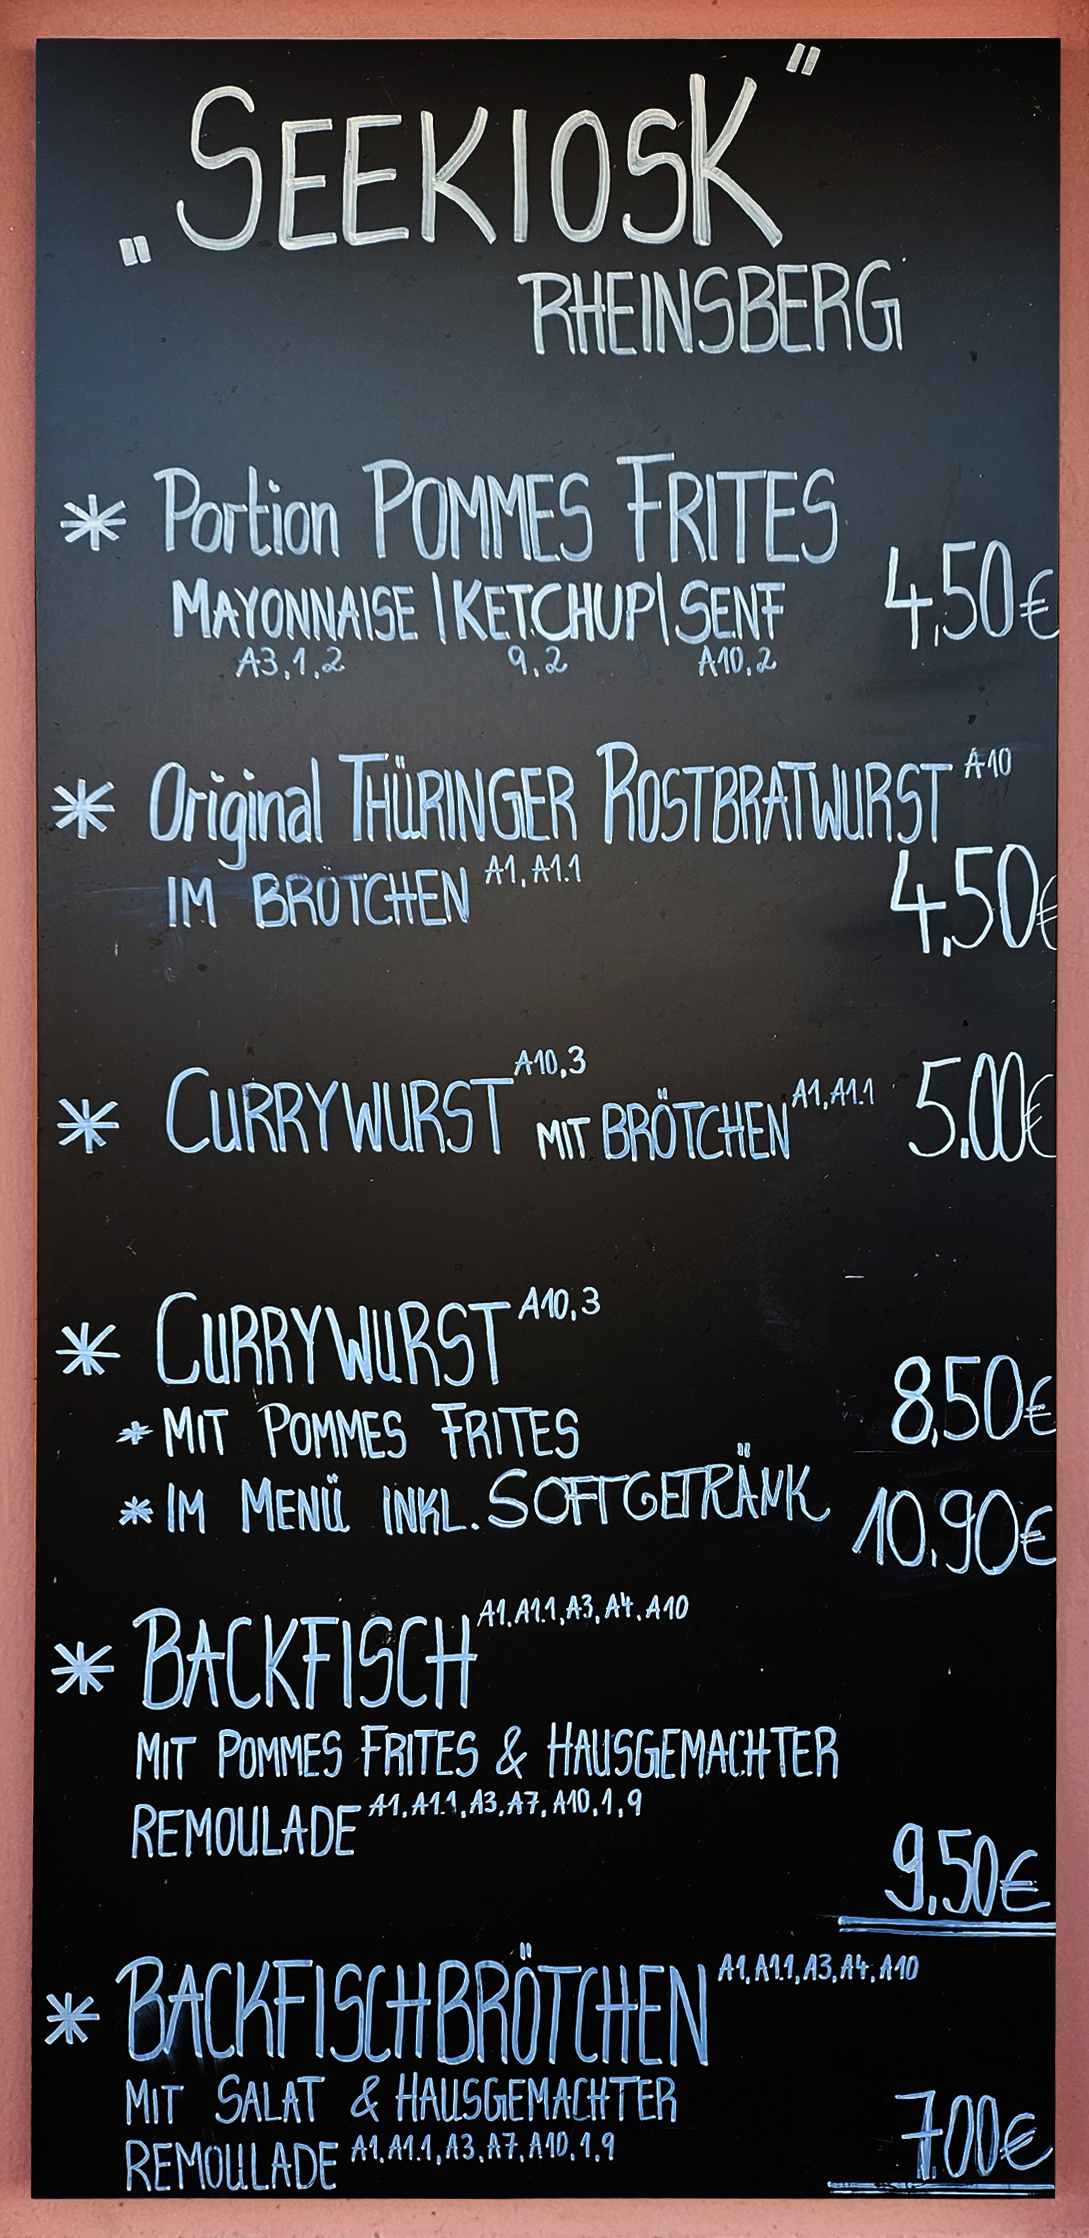 „SEEKIOSK"
RHEINSBERG
* Portion POMMES FRITES
MAYONNAISE | KETCHUP | SENF 4,50€
A3,1,2 9,2 A10,2
* Original THÜRINGER ROSTBRATWURST A10
IM BRÖTCHEN A1,A1.1 4,50€
* CURRYWURST A10,3 MIT BRÖTCHEN A1,A1.1 5.00€
* CURRYWURST A10,3
* MIT POMMES FRITES 8,50€
* IM MENÜ INKL. SOFTGETRÄNK 10,90€
* BACKFISCH A1,A1.1,A3,A4,A10
MIT POMMES FRITES & HAUSGEMACHTER
REMOULADE A1,A1.1,A3,A7,A10,1,9
9,50€
* BACKFISCHBRÖTCHEN A1,A1.1,A3,A4,A10
MIT SALAT & HAUSGEMACHTER
REMOULADE A1,A1.1,A3,A7,A10,1,9 7,00€